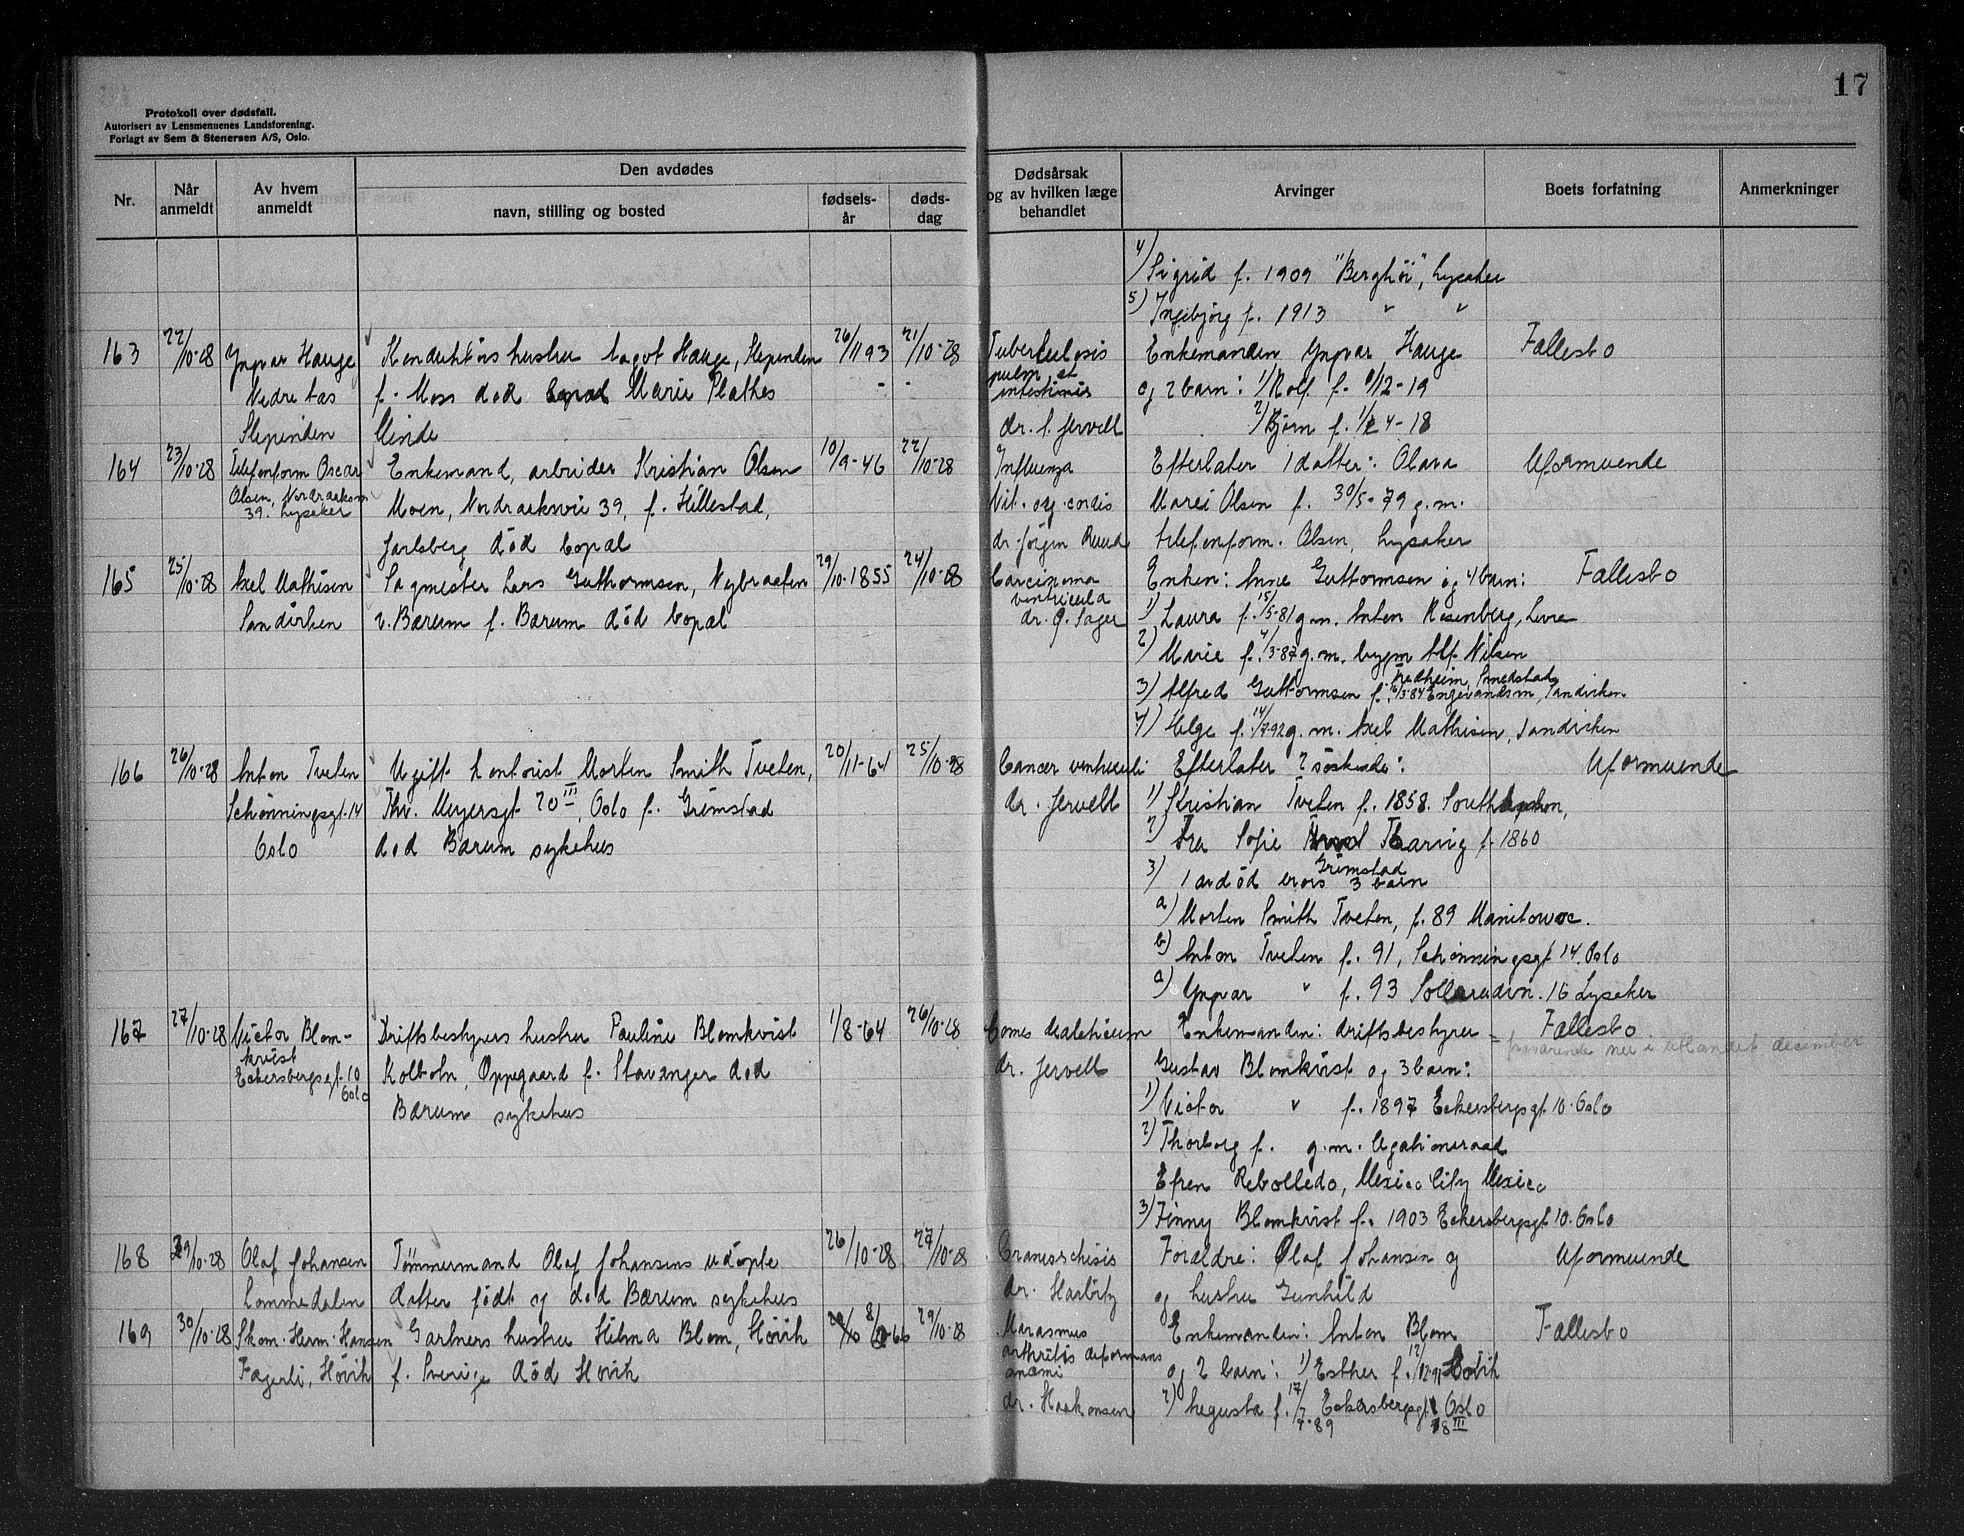 17
Protokoll over dødsfall.
Autorisert av Lensmennenes Landsforening.
Forlagt av Sem & Stenersen A/S, Oslo.
Nr.
Når anmeldt
Av hvem anmeldt
Den avdødes
navn, stilling og bosted
fødsels-år
døds-dag
Dødsårsak og av hvilken læge behandlet
Arvinger
Boets forfatning
Anmerkninger
4) Sigrid f. 1909 "Berghöi", Lysaker
5) Ingebjørg f. 1913 " "
163 22/10-28 Yngvar Hauge 26/11 93 21/10-28 Tuberkulosis Enkemanden Yngvar Hauge Fællesbo
Nedre Aas f. Moss död Marie Plathes pulm. et intestinis og 2 barn: 1) Rolf f. 9/12-19
Slependen Minde dr. Jervell 2) Bjørn f. 4-18
164 23/10-28 Telefonform Oscar Enkemand, arbeider Kristian Olsen 10/9-46 22/10-28 Influenza Efterlater 1 datter: Olava Uformuende
Olsen, 39. Lysaker Moen, 39, f. Hillestad, Vit. org. cordis Olsen f. 30/5-79 g.m.
Jarlsberg död Copal dr. Jörgen Ruud telefonform. Olsen, Lysaker
165 25/10-28 Axel Mathisen Sagmester Lars Guthormsen, Nybraaten 29/10-1855 24/10-28 Carcinoma Enken: Anne Guttormsen og 4 barn: Fællesbo
Sandviken v. Bærum f. Bærum död Copal ventricula dr. Sager 1) Laura f. 15/5-81 g.m. Anton Rosenberg,
2) Marie f. 4/3-87 g.m. bygm Alf. Nilsen
Fredheim, Smedstad
3) Alfred Guttormsen f. 16/3-84 Sandviken
4) Helga f. 14/7-92 g.m. Axel Mathisen, Sandviken
166 26/10-28 Anton Tveten Ugift kontorist Morten Smith Tveten, 20/11-64 25/10-28 Cancer ventriculi Efterlater 2 söskende: Uformuende
Schönningsgt. 14 Thv. Meyersgt 20 III, Oslo f. Grimstad dr. Jervell 1) Kristian Tveten f. 1858.
Oslo död Bærum sykehus 2) Fru Sofie f. 1860
Grimstad
3) 1 avdöd brors 3 barn
a) Morten Smith Tveten, f. 89 Manitowoc.
b) Anton Tveten f. 91, Schönningsgt 14. Oslo
c) Yngvar " f. 93 Sollerudvn. 16 Lysaker
167 27/10-28 Victor Blom- Driftsbestyrers hustru Pauline Blomkvist 1/8-64 26/10-28 dr. Jervell Enkemanden: driftsbestyrer = Fællesbo
kvist Kolbotn, Oppegaard f. Stavanger död Gustav Blomkvist og 3 barn: i utlandet december
Eckersbergsgt. 10 Oslo Bærum sykehus 1) Victor " f. 1897 Eckersbergsgt 10. Oslo
2) Thorborg f. g.m. legationsraad
Efren Rebolledo, Mexico City Mexico
3) Finny Blomkvist f. 1903 Eckersbergsgt 10. Oslo
168 29/10-28 Olaf Johansen Tömmermand Olaf Johansens udöpte 26/10-28 27/10-28 Forældre: Olaf Johansen og Uformuende
Lommedalen datter födt og död Bærum sykehus dr. Harbitz og hustru Gunhild
169 30/10-28 Skom. Herm. Hansen Gartners hustru Hilma Blom, Hövik 29/10-28 Marasmus Enkemanden: Anton Blom Fællesbo
Fagerli, Hövik f. Sverige död Hövik arthritis deformans anæmi og 2 barn: 1) Esther f. Hövik
dr. Haakonsen 2) Augusta f. 17/7-89 Eckersbergsgt 18 III Oslo